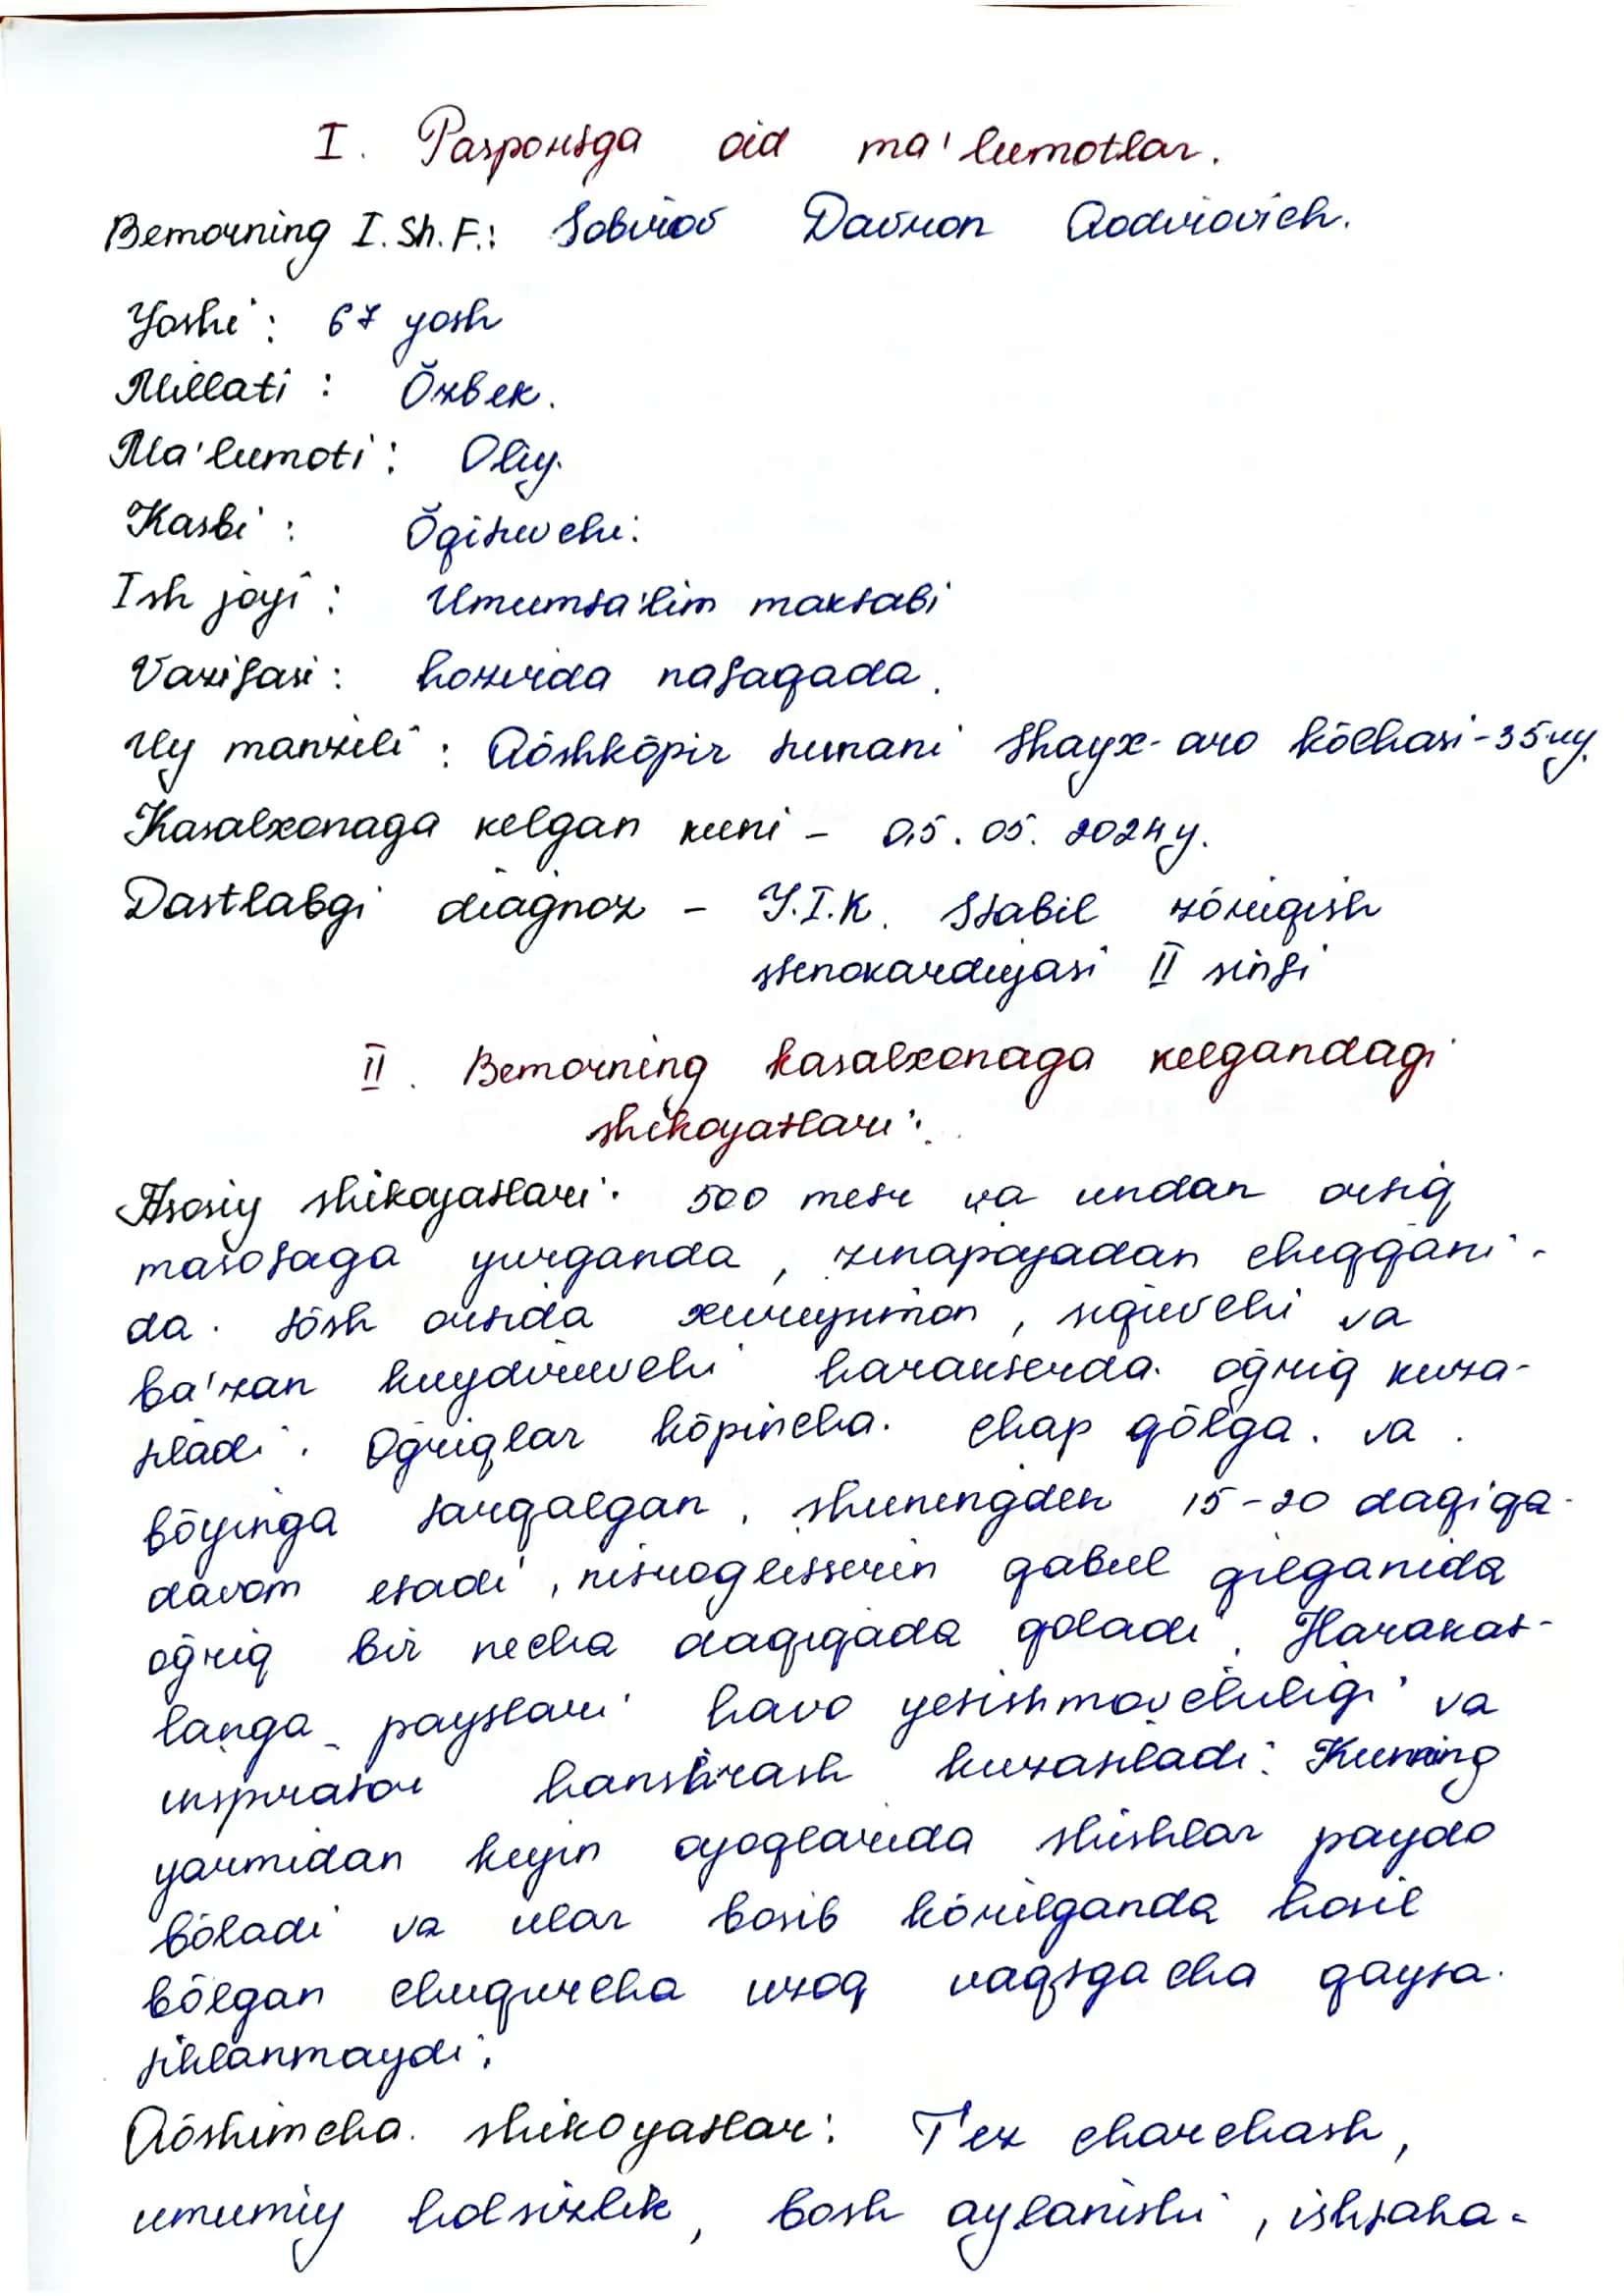 I. Pasportga oid ma'lumotlar.
Bemorning I.Sh.F.: Sobirov Davron Qodirovich.
Yoshi: 67 yosh
Millati: Õzbek.
Ma'lumoti: Oliy.
Kasbi: Õqituvchi.
Ish joyi: Umumta'lim maktabi
Vazifasi: hozirda nafaqada.
Uy manzili: Qõshkõpir tumani Shayx-aro kõchasi-35-uy.
Kasalxonaga kelgan kuni - 05.05.2024y.
Dastlabgi diagnoz - Y.I.K. Stabil zõriqish
stenokardiyasi II sinfi
II. Bemorning kasalxonaga kelgandagi
shikoyatlari:
Asosiy shikoyatlari: 500 metr va undan ortiq
masofaga yurganda, zinapoyadan chiqqani-
da tõsh ortida xurujsimon, siquvchi va
ba'zan kuydiruvchi harakterda oğriq kuza-
tiladi. Oğriqlar kõpincha chap qõlga va
bõyinga tarqalgan, shuningdek 15-20 daqiqa
davom etadi, nitroglitserin qabul qilganida
oğriq bir necha daqiqada qoladi. Harakat-
langa paytlari havo yetishmovchiligi va
inspirator hansirash kuzatiladi. Kunning
yarmidan keyin oyoqlarida shishlar paydo
bõladi va ular bosib kõrilganda hosil
bõlgan chuqurcha uzoq vaqtgacha qayta
tiklanmaydi.
Qõshimcha shikoyatlar: Tez charchash,
umumiy holsizlik, bosh aylanishi, ishtaha-